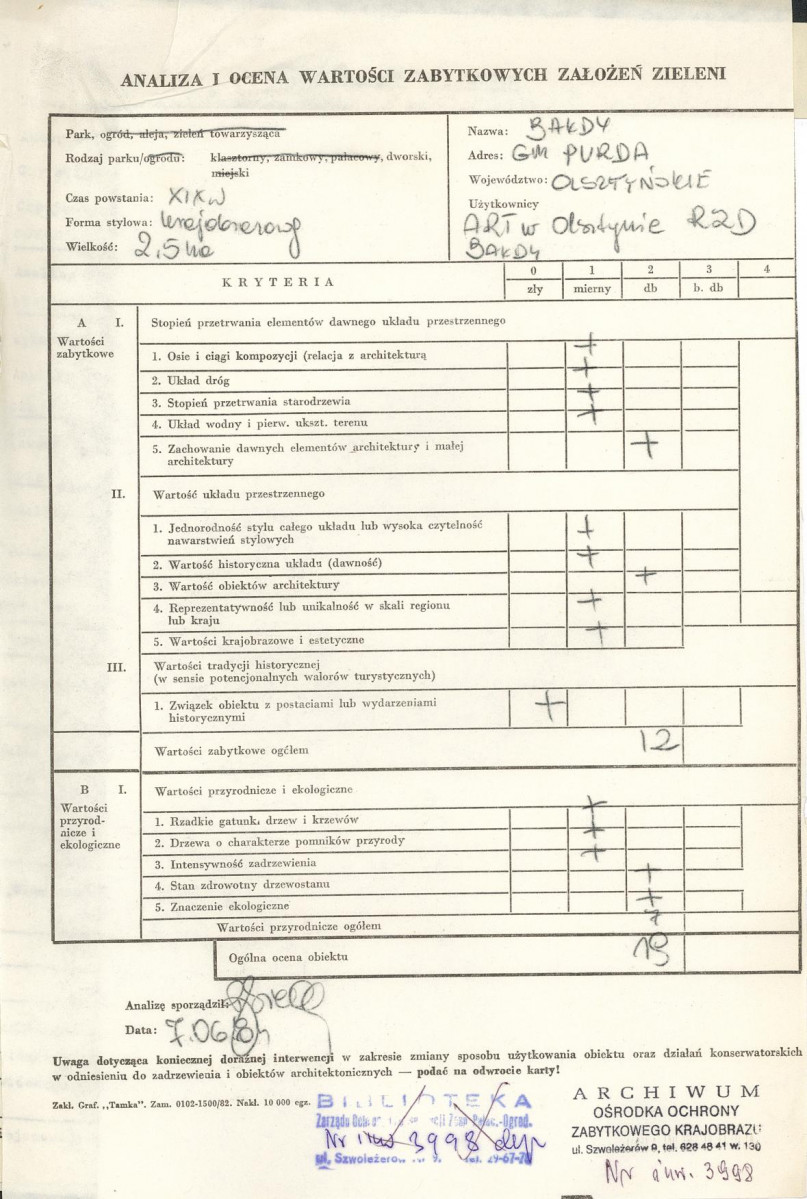 ANALIZA I OCENA WARTOŚCI ZABYTKOWYCH ZAŁOŻEŃ ZIELENI
Park, ogród, aleja, zieleń towarzysząca
Rodzaj parku/ogrodu: klasztorny, zamkowy, pałacowy, dworski,
miejski
Czas powstania: XIX w
Forma stylowa: krajobrazowy
Wielkość: 2,5 ha
Nazwa: BAŁDY
Adres: GM PURDA
Województwo: OLSZTYŃSKIE
Użytkownicy
ART w Olsztynie RZD
BAŁDY
KRYTERIA
0 1 2 3 4
zły mierny db b. db
A I. Stopień przetrwania elementów dawnego układu przestrzennego
Wartości
zabytkowe
1. Osie i ciągi kompozycji (relacja z architekturą +
2. Układ dróg +
3. Stopień przetrwania starodrzewia +
4. Układ wodny i pierw. ukszt. terenu +
5. Zachowanie dawnych elementów architektury i małej
architektury +
II. Wartość układu przestrzennego
1. Jednorodność stylu całego układu lub wysoka czytelność
nawarstwień stylowych +
2. Wartość historyczna układu (dawność) +
3. Wartość obiektów architektury +
4. Reprezentatywność lub unikalność w skali regionu
lub kraju +
5. Wartości krajobrazowe i estetyczne +
III. Wartości tradycji historycznej
(w sensie potencjonalnych walorów turystycznych)
1. Związek obiektu z postaciami lub wydarzeniami
historycznymi +
Wartości zabytkowe ogółem 12
B I. Wartości przyrodnicze i ekologiczne
Wartości
przyrod-
nicze i
ekologiczne
1. Rzadkie gatunki drzew i krzewów +
2. Drzewa o charakterze pomników przyrody +
3. Intensywność zadrzewienia +
4. Stan zdrowotny drzewostanu +
5. Znaczenie ekologiczne +
Wartości przyrodnicze ogółem 7
Ogólna ocena obiektu 19
Analizę sporządził:
Data: 7.06.84
Uwaga dotycząca koniecznej doraźnej interwencji w zakresie zmiany sposobu użytkowania obiektu oraz działań konserwatorskich
w odniesieniu do zadrzewienia i obiektów architektonicznych — podać na odwrocie karty!
Zakł. Graf. „Tamka". Zam. 0102-1500/82. Nakł. 10 000 egz.
BIBLIOTEKA
Nr inw 3998 dep
ul. Szwoleżerów 9, tel. 29-67-78
ARCHIWUM
OŚRODKA OCHRONY
ZABYTKOWEGO KRAJOBRAZU
ul. Szwoleżerów 9, tel. 628 48 41 w. 130
Nr inw. 3998